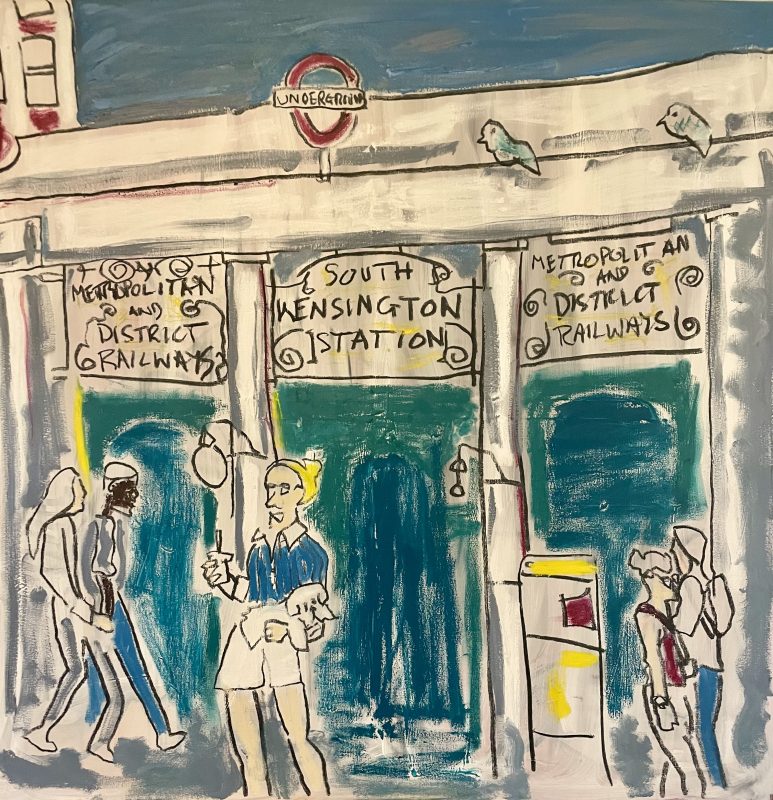 UNDERGROUND
METROPOLITAN
AND
DISTRICT
RAILWAYS
SOUTH
KENSINGTON
STATION
METROPOLITAN
AND
DISTRICT
RAILWAYS